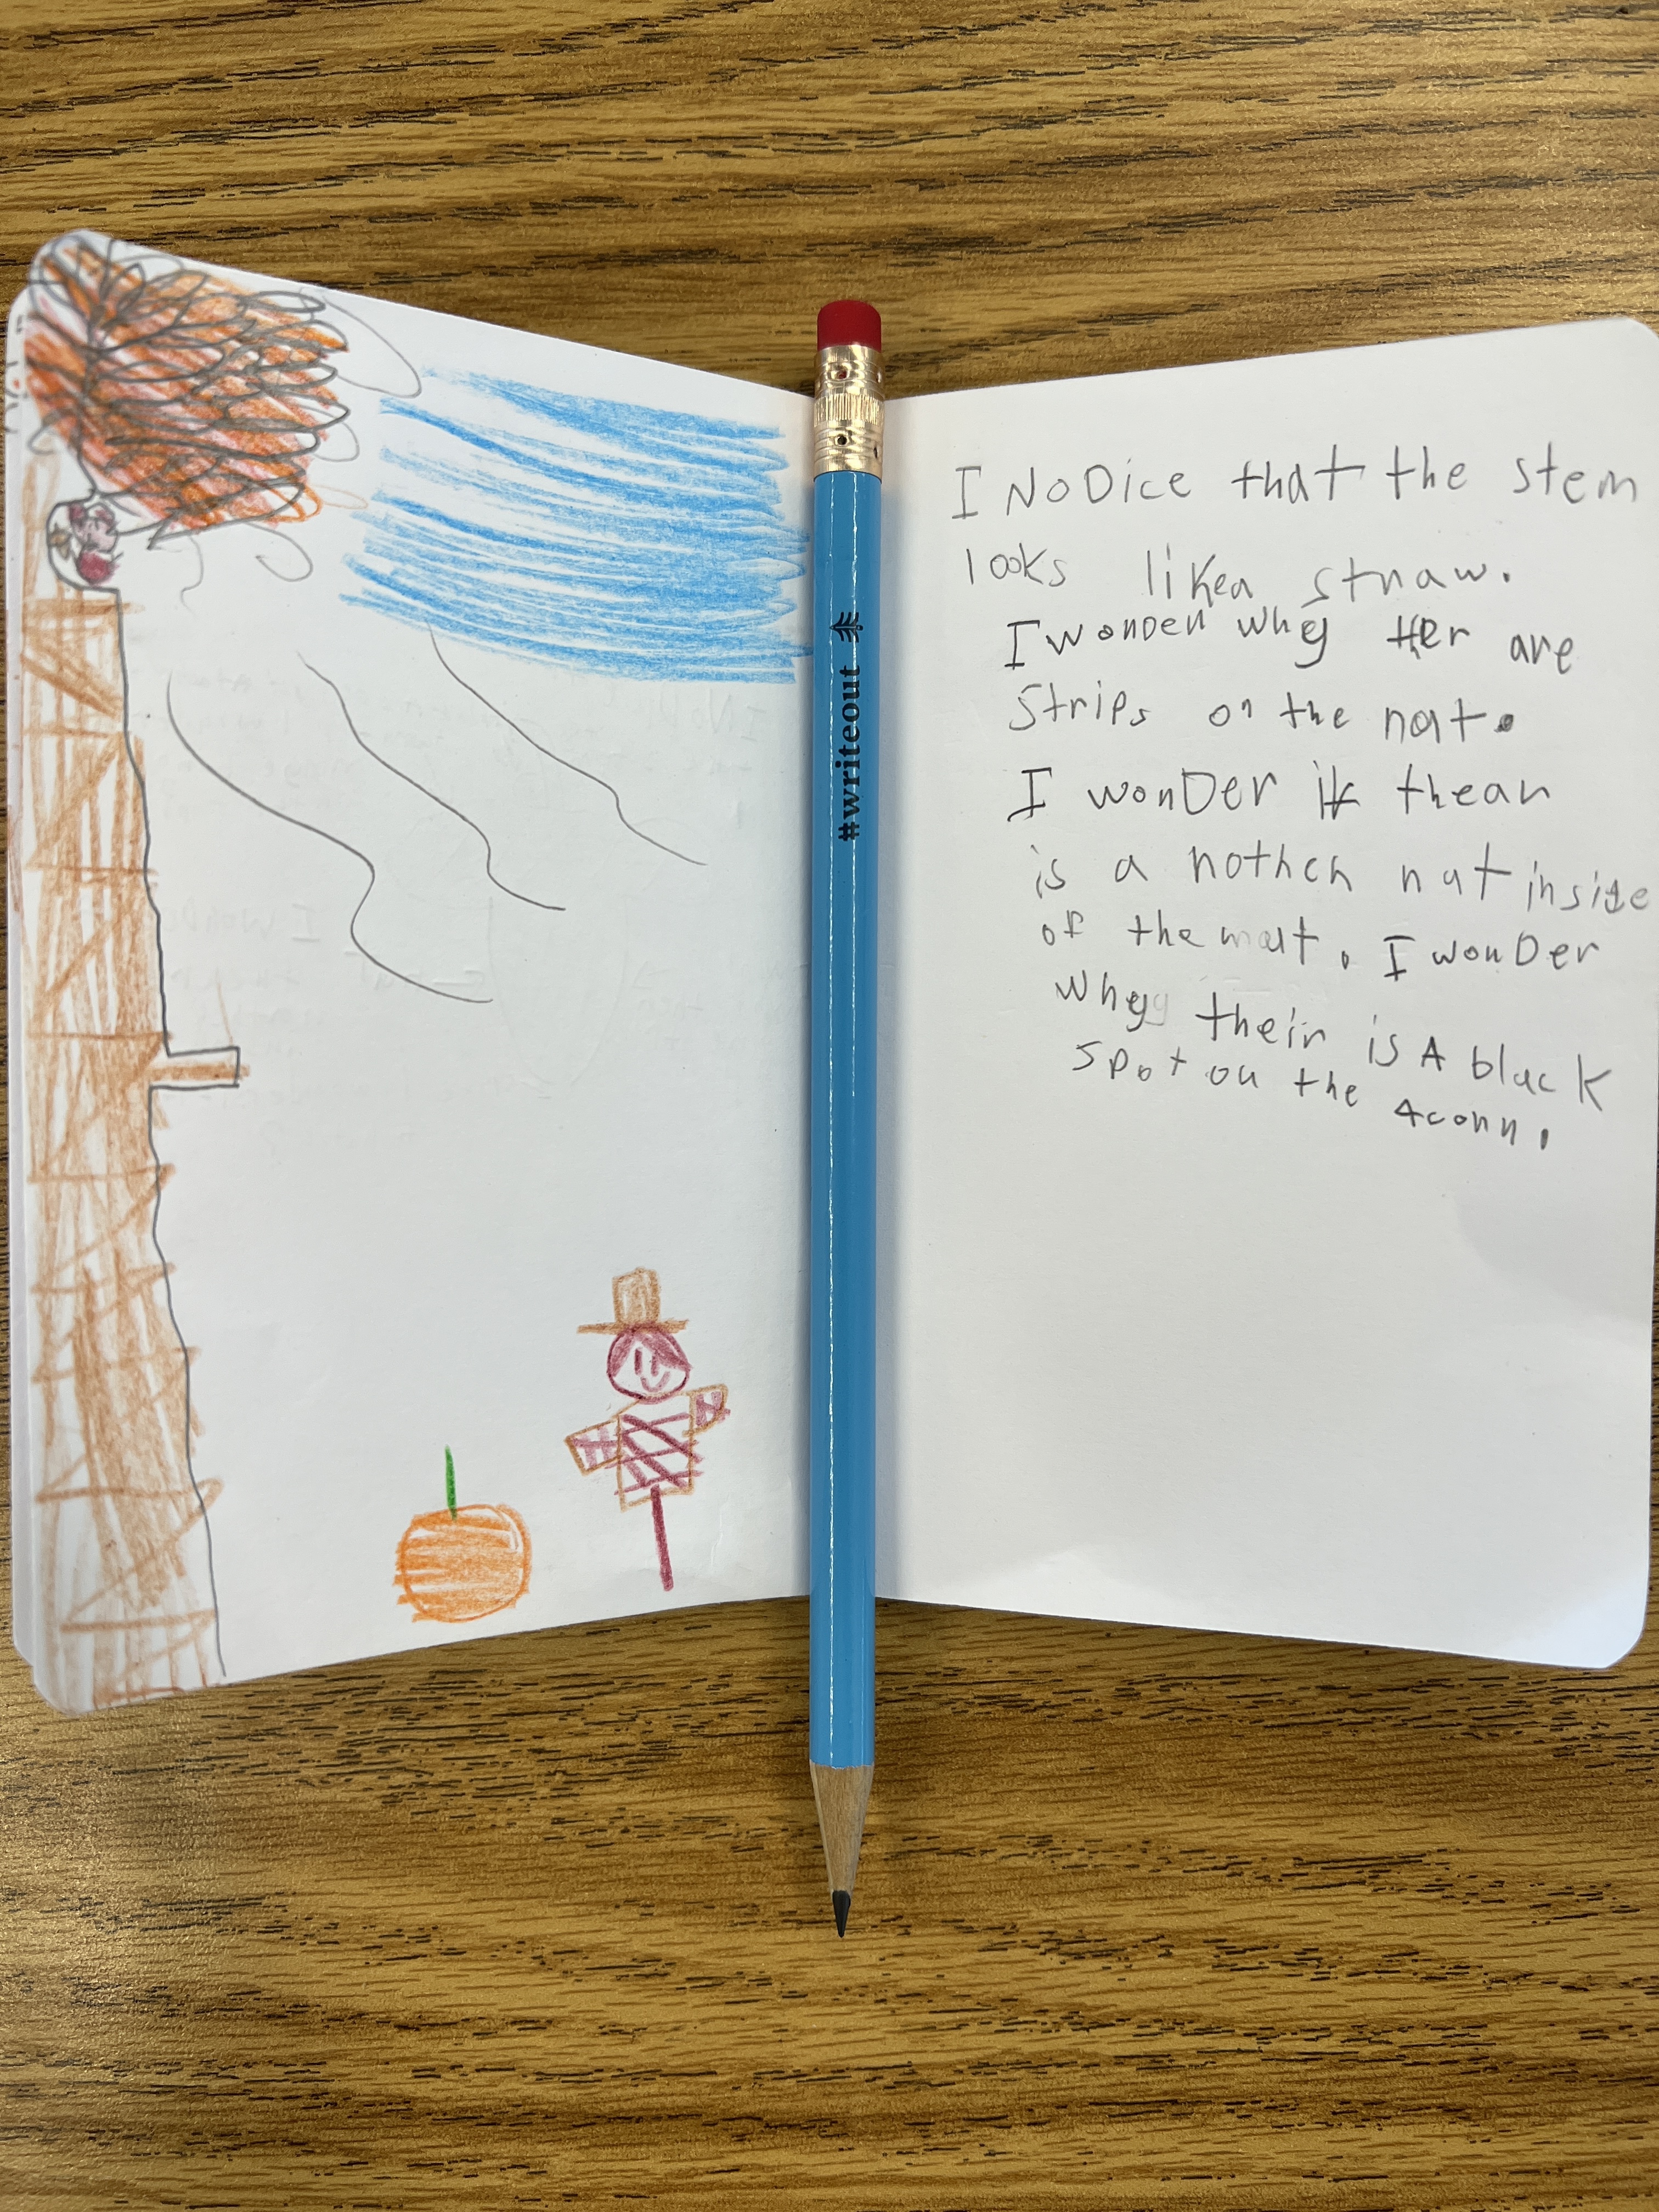 #writeout
I NoDice that the stem
looks likea straw.
I wonder whey ther are
Strips on the nut.
I wonDer if thear
is a nother nut inside
of the nut. I wonDer
whey their is A black
spot on the Aconn.